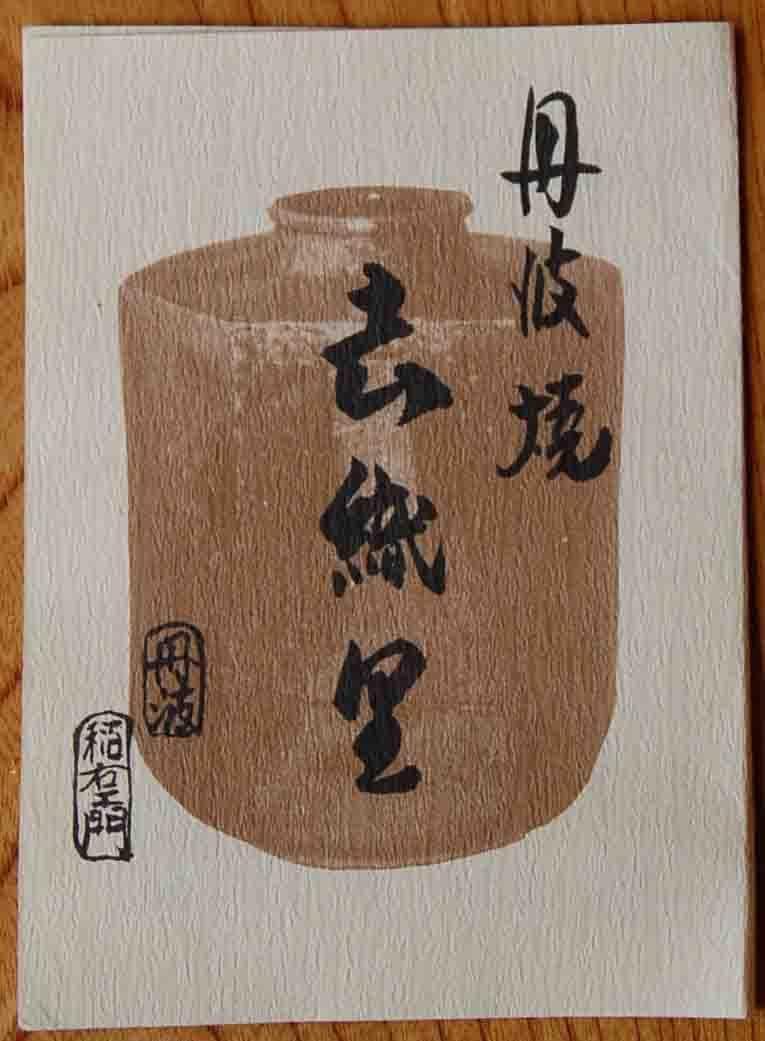 丹波焼
去織里
丹波
稲右エ門